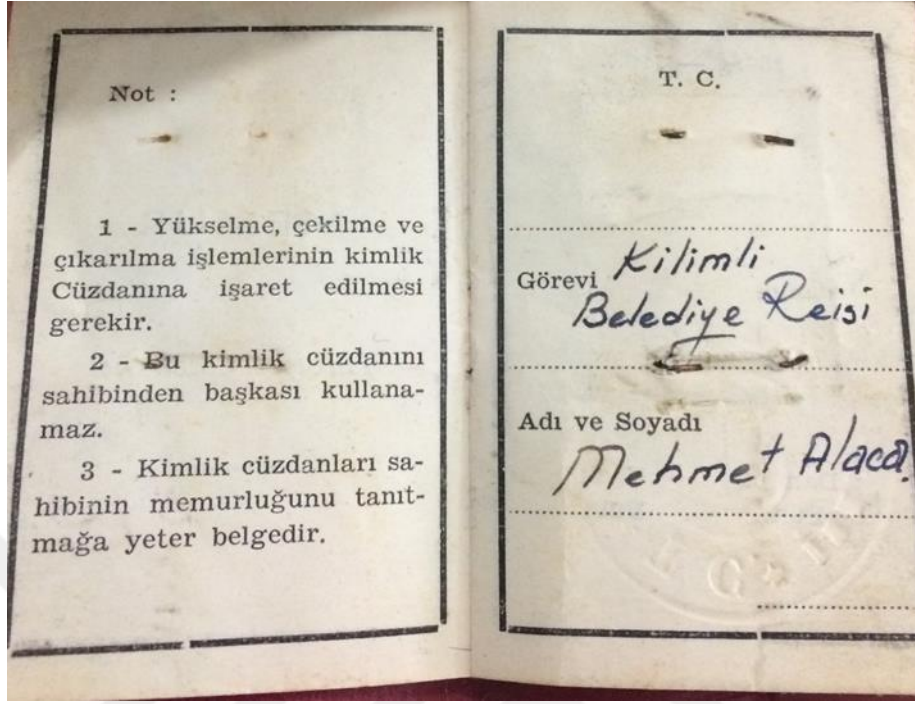 Not :
1 - Yükselme, çekilme ve
çıkarılma işlemlerinin kimlik
Cüzdanına işaret edilmesi
gerekir.
2 - Bu kimlik cüzdanını
sahibinden başkası kullana-
maz.
3 - Kimlik cüzdanları sa-
hibinin memurluğunu tanıt-
mağa yeter belgedir.
T. C.
Görevi Kilimli
Belediye Reisi
Adı ve Soyadı
Mehmet Alaca